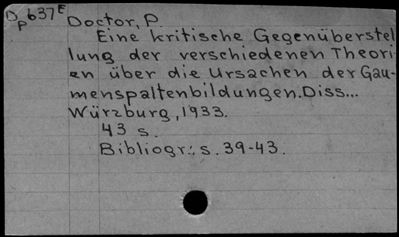 Dp637E Doctor, P.
Eine kritische Gegenüberstel
lung der verschiedenen Theori
en über die Ursachen der Gau-
menspaltenbildungen. Diss...
Würzburg, 1933.
43 s.
Bibliogr.: s. 39-43.